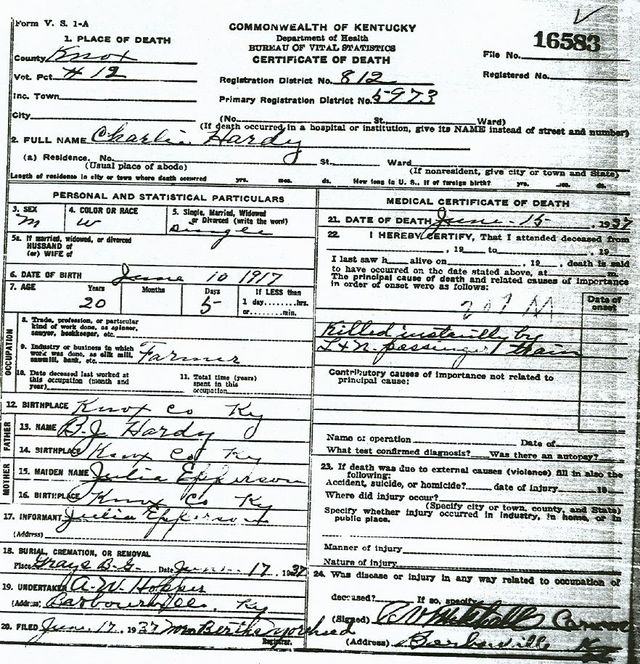 Form V. S. 1-A
COMMONWEALTH OF KENTUCKY
Department of Health
BUREAU OF VITAL STATISTICS
CERTIFICATE OF DEATH
16583
File No.
Registered No.
1. PLACE OF DEATH
County Knox
Vot. Pct. # 12
Inc. Town
City
Registration District No. 812
Primary Registration District No. 5973
(No. St. Ward)
(If death occurred in a hospital or institution, give its NAME instead of street and number)
2. FULL NAME Charlie Hardy
(a) Residence, No. St. Ward
(Usual place of abode) (If nonresident, give city or town and State)
Length of residence in city or town where death occurred yrs. mos. ds. How long in U. S., if of foreign birth? yrs. mos. ds.
PERSONAL AND STATISTICAL PARTICULARS
3. SEX
m
4. COLOR OR RACE
w
5. Single, Married, Widowed
or Divorced (write the word)
Single
5a. If married, widowed, or divorced
HUSBAND of
(or) WIFE of
6. DATE OF BIRTH June 10 1917
7. AGE Years Months Days If LESS than
20 5 1 day......hrs.
or......min.
OCCUPATION
8. Trade, profession, or particular
kind of work done, as spinner,
sawyer, bookkeeper, etc.
9. Industry or business in which
work was done, as silk mill,
sawmill, bank, etc. Farmer
10. Date deceased last worked at
this occupation (month and
year)
11. Total time (years)
spent in this
occupation
12. BIRTHPLACE Knox Co Ky
FATHER
13. NAME B. J. Hardy
14. BIRTHPLACE Knox Co Ky
MOTHER
15. MAIDEN NAME Julia Epperson
16. BIRTHPLACE Knox Co Ky
17. INFORMANT Julia Epperson
(Address)
18. BURIAL, CREMATION, OR REMOVAL
Place Grays B.G. Date June 17 1937
19. UNDERTAKER A. W. Hopper
(Address) Barbourville, Ky
20. FILED June 17, 1937 Mrs Bertha
Registrar.
MEDICAL CERTIFICATE OF DEATH
21. DATE OF DEATH June - 15 , 1937
22. I HEREBY CERTIFY, That I attended deceased from
, 19 to , 19
I last saw h alive on , 19 , death is said
to have occurred on the date stated above, at m.
The principal cause of death and related causes of importance
in order of onset were as follows:
Date of
onset
Killed instantly by
L & N. passenger train
Contributory causes of importance not related to
principal cause:
Name of operation Date of
What test confirmed diagnosis? Was there an autopsy?
23. If death was due to external causes (violence) fill in also the
following:
Accident, suicide, or homicide? date of injury 19
Where did injury occur?
(Specify city or town, county, and State)
Specify whether injury occurred in industry, in home, or in
public place.
Manner of injury
Nature of injury
24. Was disease or injury in any way related to occupation of
deceased? If so, specify
(Signed) Mitchell
(Address) Barboville Ky